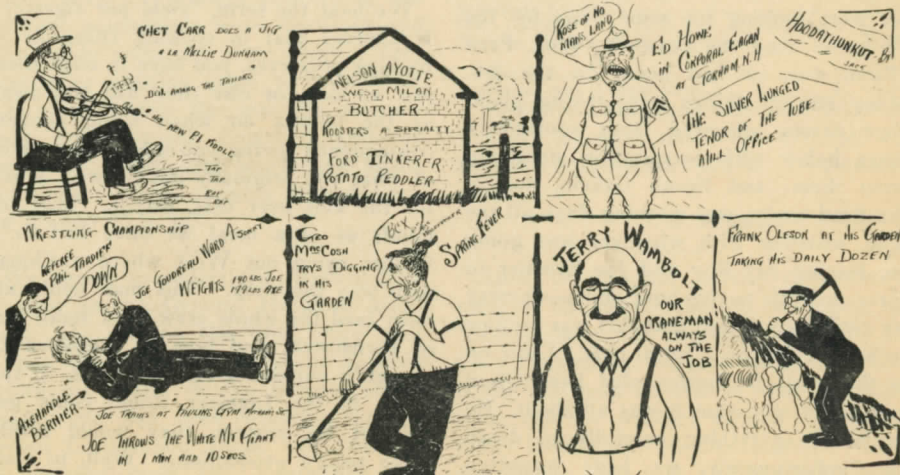 CHET CARR DOES A JIG
A LA NELLIE DUNHAM
"DEVIL AMONG THE TAILORS"
TAP
TAP
NELSON AYOTTE
WEST MILAN
BUTCHER
ROOSTERS A SPECIALTY
FORD TINKERER
POTATO PEDDLER
ROSE OF NO
MAN'S LAND
ED HOWE
IN CORPORAL EAGAN
AT GORHAM N.H
THE SILVER LUNGED
TENOR OF THE TUBE
MILL OFFICE
HOODATHUNKUT
BY
WRESTLING CHAMPIONSHIP
REFEREE
PHIL TARDIFF
DOWN
JOE GOUDREAU WARD A
WEIGHTS 140 LBS JOE
"AXEHANDLE"
BERNIER
JOE TRAINS AT PAULINS GYM
JOE THROWS THE WHITE MT GIANT
IN 1 MIN AND 10 SECS.
GEO
MACCOSH
TRYS DIGGING
IN HIS
GARDEN
SPRING FEVER
JERRY WAMBOLT
OUR
CRANEMAN
ALWAYS
ON THE
JOB
FRANK OLESON AT HIS GARDEN
TAKING HIS DAILY DOZEN